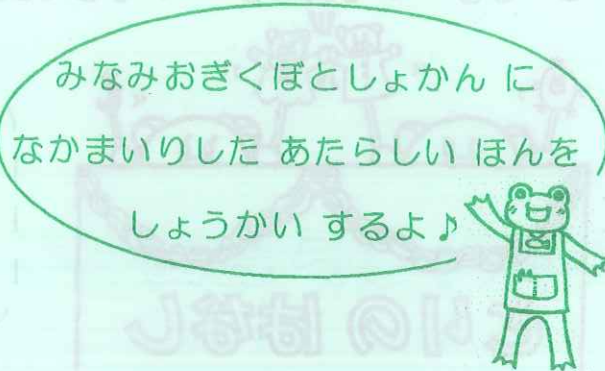 みなみおぎくぼとしょかん に
なかまいりした あたらしい ほんを
しょうかい するよ♪